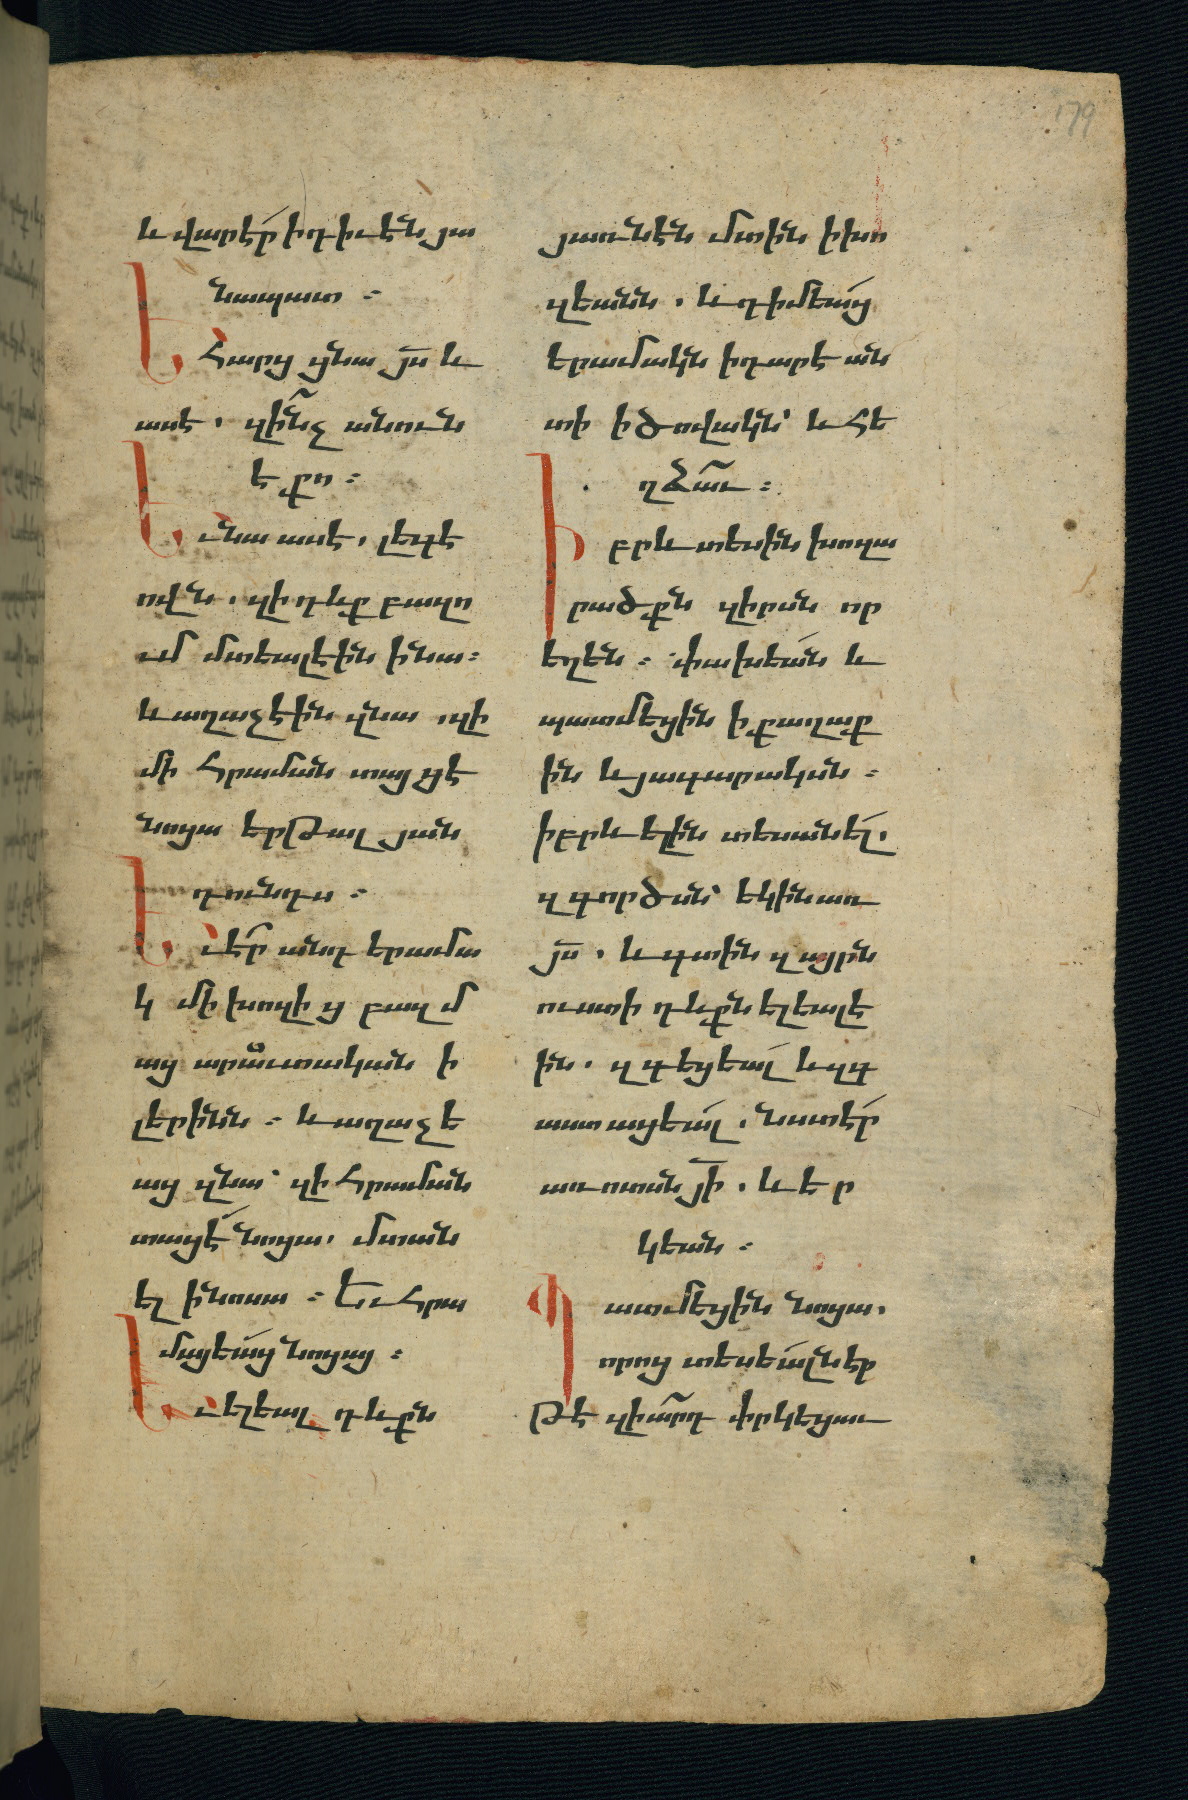 179
և վարէր ի դիւէն յա
նապատ ։
Եհարց ցնա յս և
ասէ . զինչ անուն
է քո ։
Եւ նա ասէ . լեգէ
ովն . զի դևք բազո
ւմ մտեալ էին ի նա ։
և աղաչէին զնա . զի
մի հրաման տայցէ
նոցա երթալ յան
դունդս ։
Եւ էր անդ երամա
կ մի խոզից բազմ
աց արաւտական ի
լերինն ։ և աղաչէ
ին զնա՝ զի հրաման
տայցէ նոցա . մտան
ել ի նոսա ։ Եւ հրա
մայեաց նոցա ։
Եւ ելեալ դևքն
յառնէն մտին ի խո
զեանն . և դիմեաց
երամակն ի դարէ ան
տի ի ծովակն՝ և հե
ղձաւ ։
Իբրև տեսին խոզա
րածքն զիրսն որ
եղեն ։ փախեան և
պատմեցին ի քաղաք
ին և յագարակսն ։
իբրև ելին տեսանել .
զգործսն՝ եկին առ
յս . և գտին զայրն
ուստի դևքն ելեալ է
ին . զգեցեալ և զգ
աստացեալ . նստէր
առ ոտսն յի . և եր
կեան ։
Պատմեցին նոցա .
որոց տեսեալ ն էր
թէ զիարդ փրկեցաւ